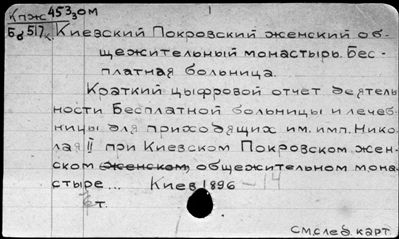 Кпж 453 зом
1
Бб 517к Киевский Покровский женский об-
щежительный монастырь. Бес-
платная больница.
Краткий цыфровой отчет деятель
ности Бесплатной больницы и лечеб-
ницы для приходящих им. имп. Нико-
лая II при Киевском Покровском жен-
ском женском, общежительном мона-
стыре... Киев 1896 - 14
т.
См. след. карт